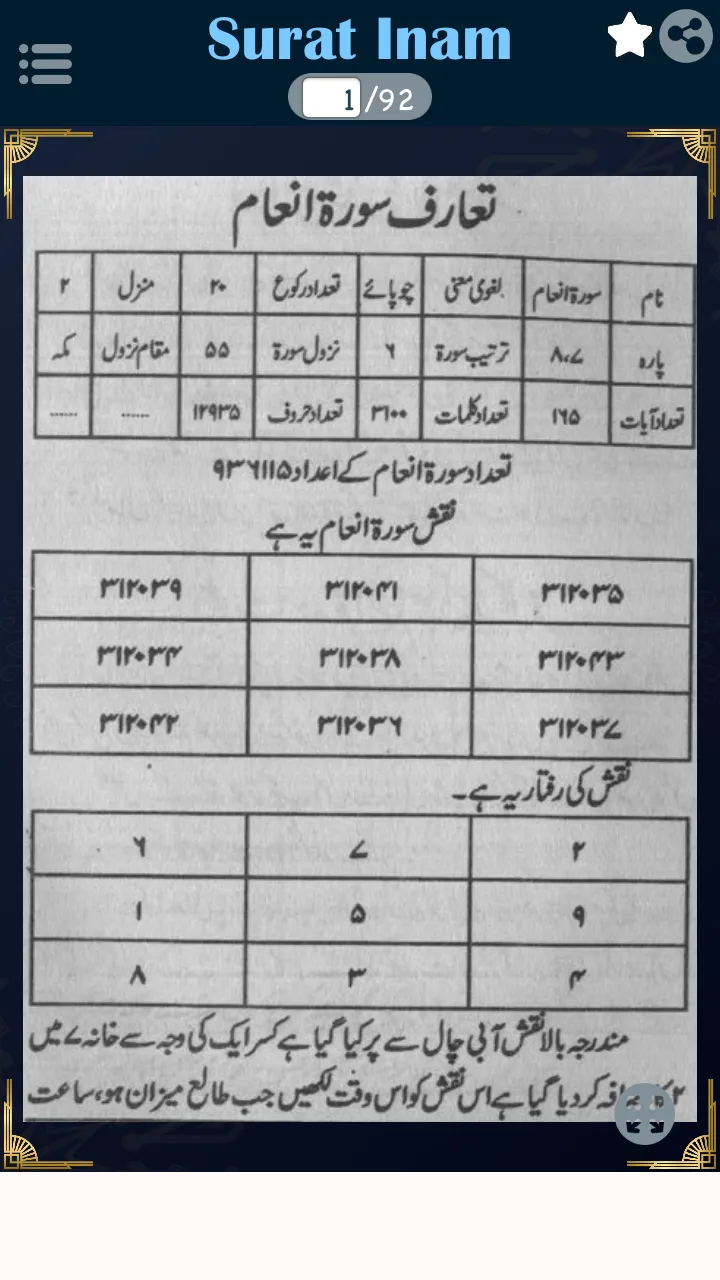 Surat Inam
1 /92
تعارف سورۃ انعام
نام سورۃ انعام بلغوی معنی چوپائے تعداد رکوع ۲۰ منزل ۲
پارہ ۸،۷ ترتیب سورۃ ۶ نزول سورۃ ۵۵ مقام نزول مکہ
تعداد آیات ۱۶۵ تعداد کلمات ۳۱۰۰ تعداد حروف ۱۲۹۳۵ ...... ......
تعداد سورۃ انعام کے اعداد ۹۳۶۱۱۵
نقش سورۃ انعام یہ ہے
۳۱۲۰۳۵ ۳۱۲۰۴۱ ۳۱۲۰۳۹
۳۱۲۰۴۳ ۳۱۲۰۳۸ ۳۱۲۰۳۴
۳۱۲۰۳۷ ۳۱۲۰۳۶ ۳۱۲۰۴۲
نقش کی رفتار یہ ہے۔
۲ ۷ ۶
۹ ۵ ۱
۴ ۳ ۸
مندرجہ بالا نقش آبی چال سے پر کیا گیا ہے کسر ایک کی وجہ سے خانہ ۷ میں
۲ کر دیا گیا ہے اس نقش کو اس وقت لکھیں جب طالع میزان ہو، ساعت